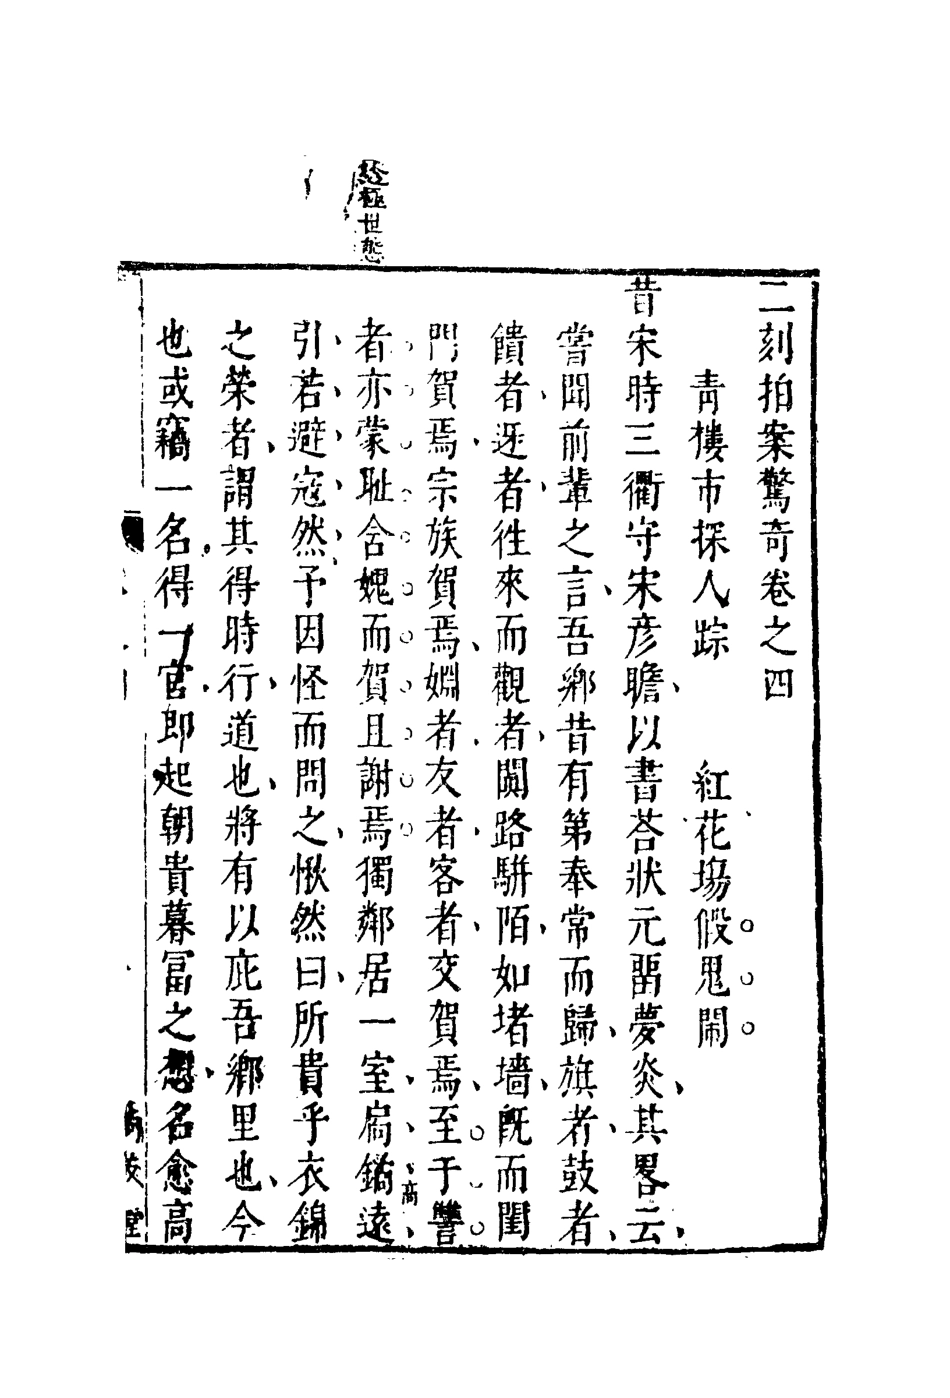 二刻拍案驚奇卷之四
青樓市探人踪　紅花塲假鬼鬧
昔宋時三衢守宋彥瞻以書荅狀元畱夢炎其畧云
嘗聞前輩之言吾鄉昔有第奉常而歸旗者鼓者
饋者迓者徃來而觀者闐路駢陌如堵墻旣而閨
門賀焉宗族賀焉婣者友者客者交賀焉至于讐
者亦蒙耻含媿而賀且謝焉獨鄰居一室扃鐍遠
引若避寇然予因怪而問之愀然曰所貴乎衣錦
之榮者謂其得時行道也將有以庇吾鄉里也今
也或竊一名得一官即起朝貴暮冨之想名愈高
極世態
高